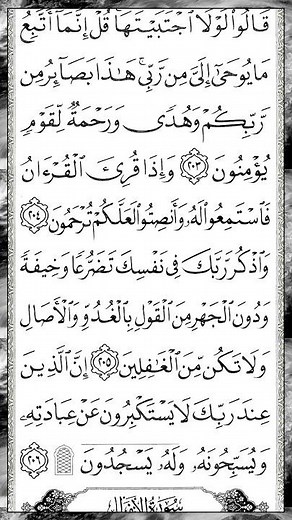 قَالُواْ لَوْلَا ٱجْتَبَيْتَهَا قُلْ إِنَّمَآ أَتَّبِعُ
مَا يُوحَىٰٓ إِلَىَّ مِن رَّبِّى هَٰذَا بَصَآئِرُ مِن
رَّبِّكُمْ وَهُدًى وَرَحْمَةٌ لِّقَوْمٍ
يُؤْمِنُونَ ٢٠٣ وَإِذَا قُرِئَ ٱلْقُرْءَانُ
فَٱسْتَمِعُواْ لَهُۥ وَأَنصِتُواْ لَعَلَّكُمْ تُرْحَمُونَ ٢٠٤
وَٱذْكُر رَّبَّكَ فِى نَفْسِكَ تَضَرُّعًا وَخِيفَةً
وَدُونَ ٱلْجَهْرِ مِنَ ٱلْقَوْلِ بِٱلْغُدُوِّ وَٱلْأَصَالِ
وَلَا تَكُن مِّنَ ٱلْغَٰفِلِينَ ٢٠٥ إِنَّ ٱلَّذِينَ
عِندَ رَبِّكَ لَا يَسْتَكْبِرُونَ عَنْ عِبَادَتِهِۦ
وَيُسَبِّحُونَهُۥ وَلَهُۥ يَسْجُدُونَ ٢٠٦
سُورَةُ الأَنفَالِ